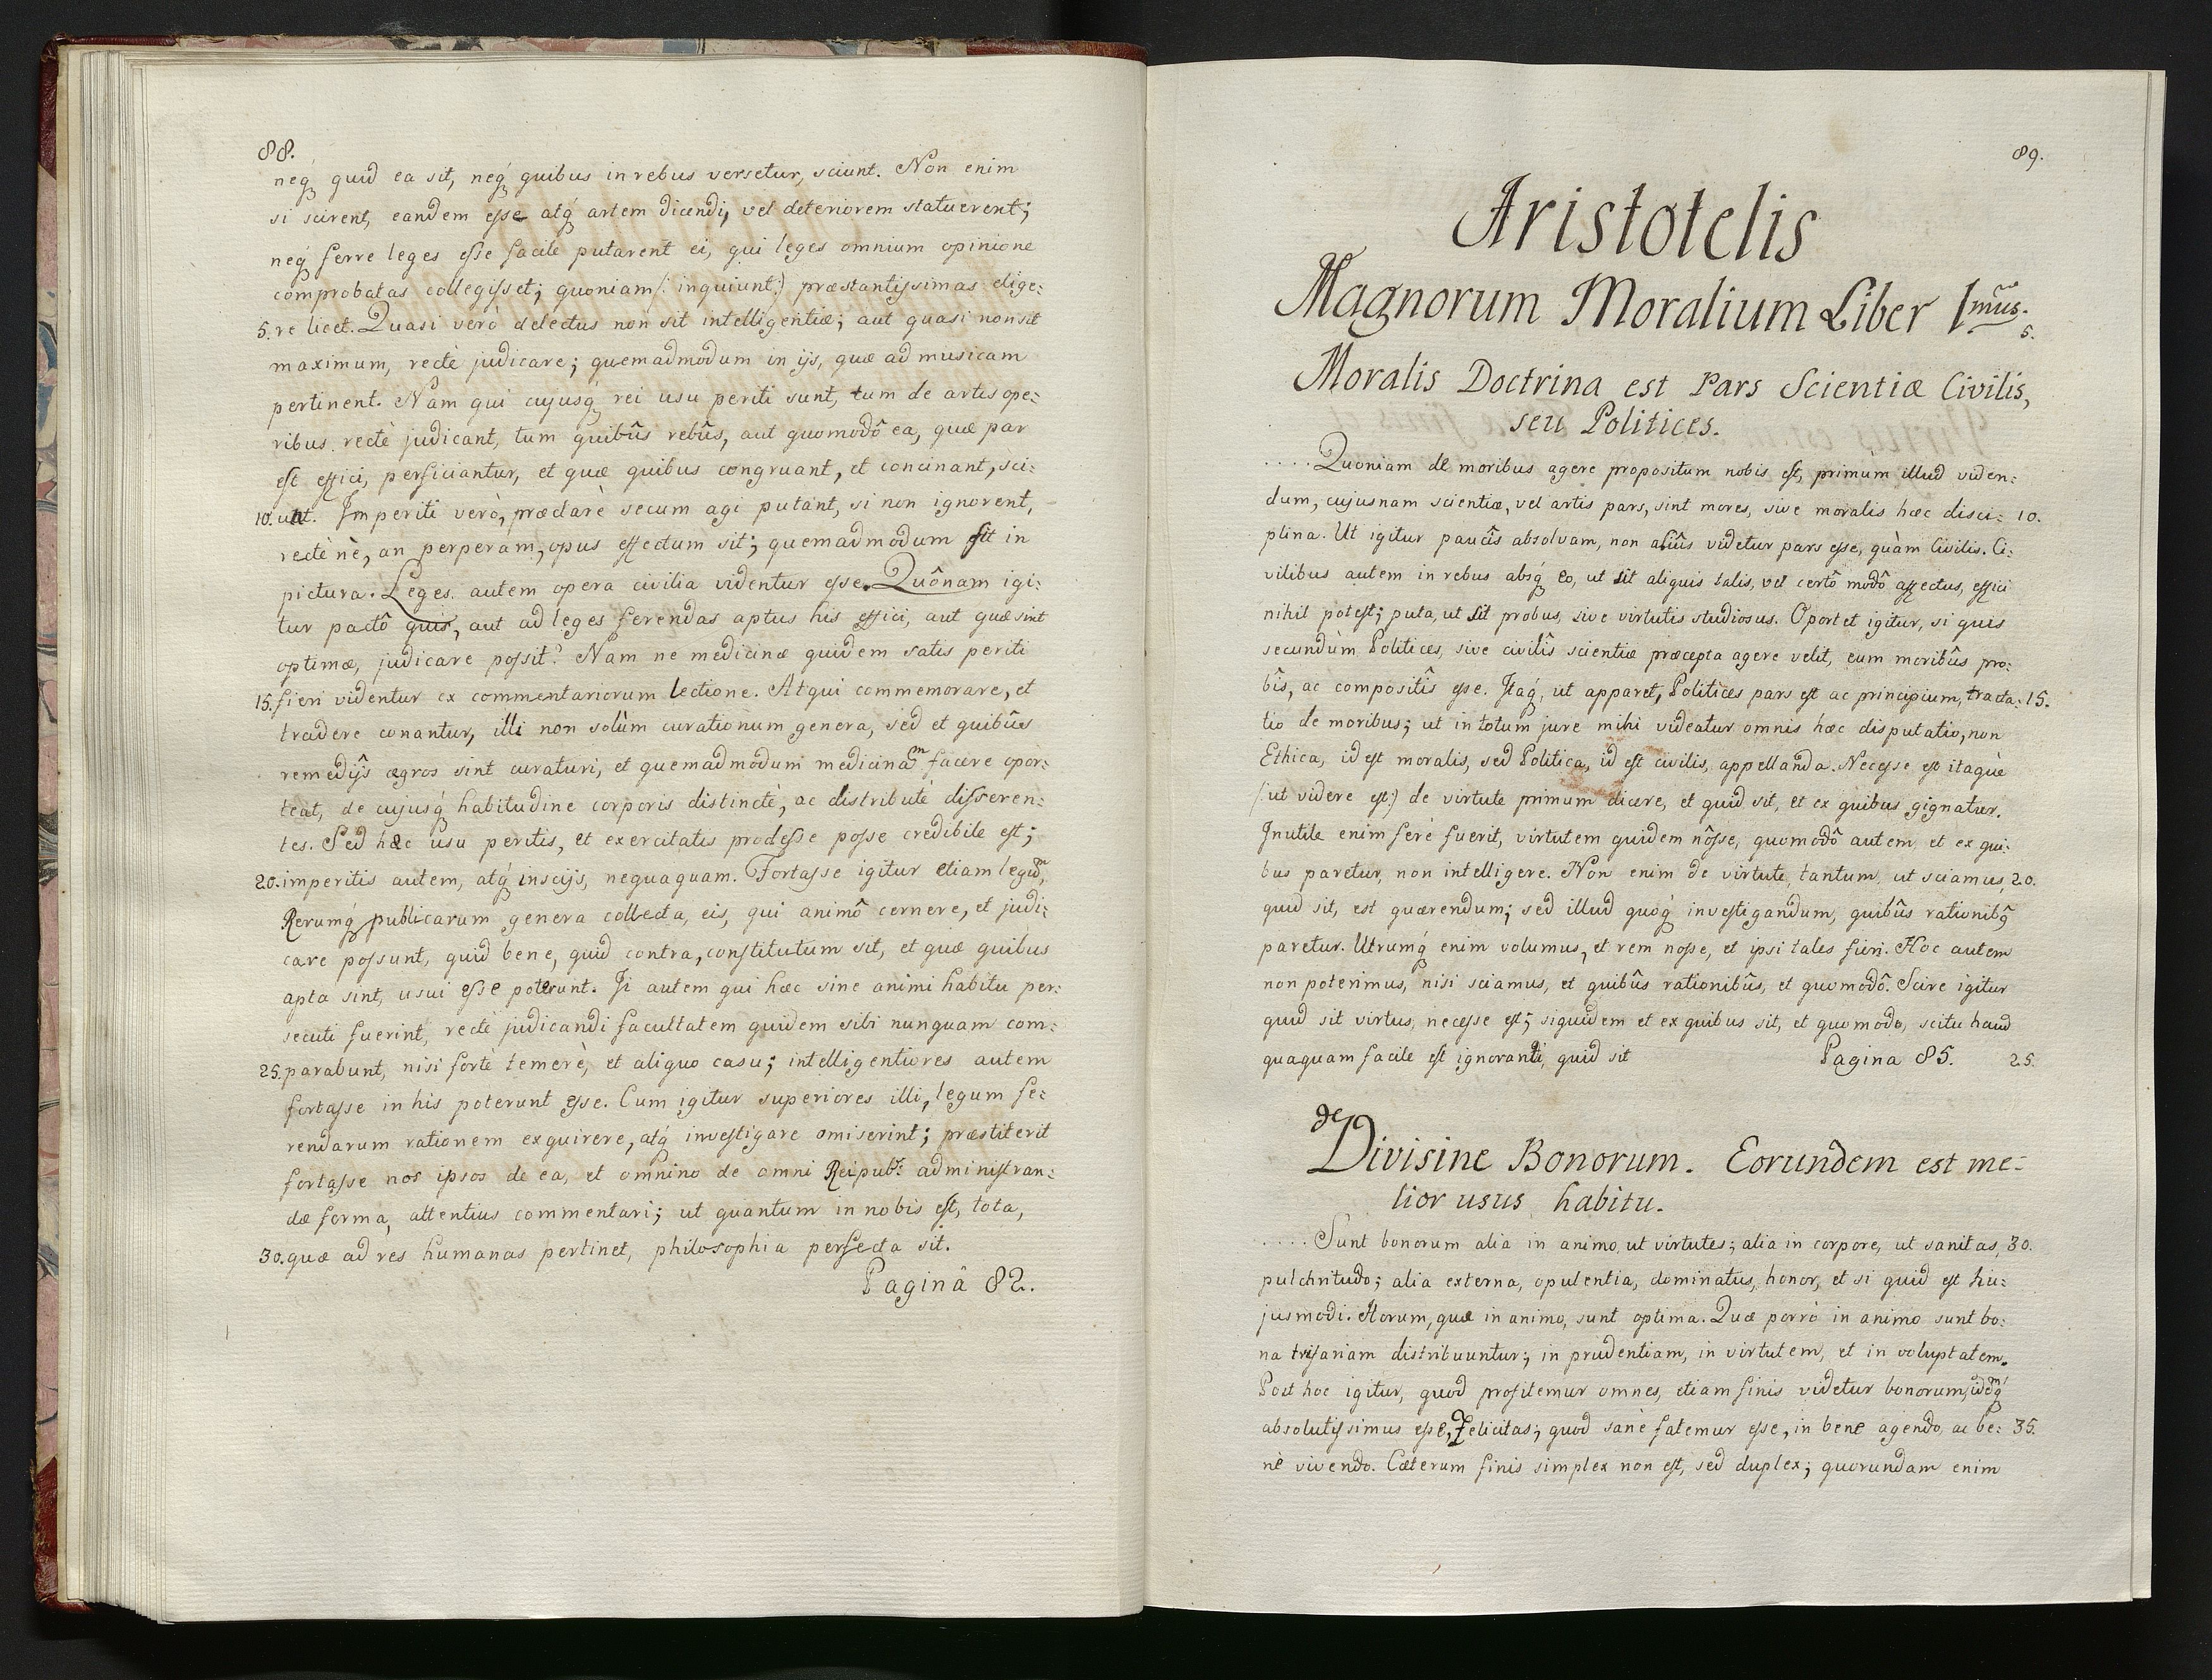 88.
neq́ quid ea sit, neq́ quibus in rebus versetur, sciunt. Non enim
si scirent, eandem esse atq́ artem dicendi, vel deteriorem statuerent;
neq́ ferre leges esse facile putarent ei, qui leges omnium opinione
comprobatas collegisset; quoniam /: inquiunt:/ præstantissimas elige:
5. re licet. Quasi verò delectus non sit intelligentiæ; aut quasi non sit
maximum, rectè judicare; quemadmodum in ijs, quæ ad musicam
pertinent. Nam qui cujusq́ rei usu periti sunt, tum de artis ope:
ribus rectè judicant, tum quibûs rebûs, aut quomodô ea, quæ par
est effici, perficiantur, et quæ quibus congruant, et concinant, sci:
10. unt. Imperiti verò, præclarè secum agi putant, si non ignorent,
rectè nè, an perperàm, opus effectum sit; quemadmodum fit in
pictura. Leges autem opera civilia videntur esse. Quônam igi:
tur pactô quis, aut ad leges ferendas aptus his effici, aut quæ sint
optimæ, judicare possit? Nam ne medicinæ quidem satis periti
15. fieri videntur ex commentariorum lectione. Atqui commemorare, et
tradere conantur, illi non solùm curationum genera, sed et quibûs
remedijs ægros sint curaturi, et quemadmodum medicinam facere opor:
teat, de cujusq́ habitudine corporis distinctè, ac distributè disseren:
tes. Sed hæc usu peritis, et exercitatis prodesse posse credibile est;
20. imperitis autem, atq́ inscijs, nequaquam. Fortasse igitur etiam legum,
Rerumq́ publicarum genera collecta, eis, qui animô cernere, et judi:
care possunt, quid bene, quid contra, constitutum sit, et quæ quibus
apta sint, usui esse poterunt. Ji autem qui hæc sine animi habitu per:
secuti fuerint, rectè judicandi facultatem quidem sibi nunquam com:
25. parabunt, nisi fortè temerè, et aliquo casu; intelligentiores autem
fortasse in his poterunt esse. Cum igitur superiores illi, legum fe:
rendarum rationem exquirere, atq́ investigare omiserint; præstiterit
fortasse nos ipsos de ea, et omnino de omni Reipubl: administran:
dæ forma, attentius commentari; ut quantum in nobis est, tota,
30. quæ ad res humanas pertinet, philosophia perfecta sit.
Paginâ 82.
89.
Aristotelis
Magnorum Moralium Liber 1mus.
5.
Moralis Doctrina est Pars Scientiæ Civilis,
seu Politices.
..... Quoniam de moribus agere propositum nobis est, primùm illud viden:
dum, cujusnam scientiæ, vel artis pars, sint mores, sive moralis hæc disci: 10.
plina. Ut igitur paucîs absolvam, non aliûs videtur pars esse, quàm Civilis. Ci:
vilibus autem in rebus absq́ eo, ut sit aliquis talis, vel certô modô affectus, effici
nihil potest; puta, ut sit probus, sive virtutis studiosus. Oportet igitur, si quis
secundùm Politices, sive civilîs scientiæ præcepta agere velit, eum moribûs pro:
bîs, ac compositîs esse. Itaq́, ut apparet, Politices pars est ac principium, tracta: 15.
tio de moribus; ut in totum jure mihi videatur omnis hæc disputatio, non
Ethica, id est moralis, sed Politica, id est civilis, appellanda. Necesse est itaquè
/: ut videre est:/ de virtute primum dicere, et quid sit, et ex quibus gignatur.
Inutile enim ferè fuerit, virtutem quidem nôsse, quomodô autem, et ex qui:
bus paretur, non intelligere. Non enim de virtute, tantum, ut sciamus, 20.
quid sit, est quærendum; sed illud quoq́ investigandum, quibûs rationibq̃
paretur. Utrumq́ enim volumus, et rem nosse, et ipsi tales fieri. Hoc autem
non poterimus, nisi sciamus, et quibûs rationibûs, et quomodô. Scire igitur
quid sit virtus, necesse est; siquidem et ex quibus sit, et quomodo, scitu haud
quaquam facile est ignoranti, quid sit Pagina 85. 25.
de
Divisine Bonorum. Eorundem est me:
lior usus habitu.
..... Sunt bonorum alia in animo, ut virtutes; alia in corpore, ut sanitas, 30.
pulchritudo; alia externa, opulentia, dominatus, honor, et si quid est hu:
jusmodi. Horum, quæ in animo, sunt optima. Quæ porrò in animo sunt bo:
na trifariam distribuuntur; in prudentiam, in virtutem, et in voluptatem.
Post hoc igitur, quod profitemur omnes, etiam finis videtur bonorum, idemq́
absolutissimus esse, Felicitas; quod sanè fatemur esse, in bene agendo, ac be: 35.
nè vivendo. Cæterum finis simplex non est, sed duplex; quorundam enim